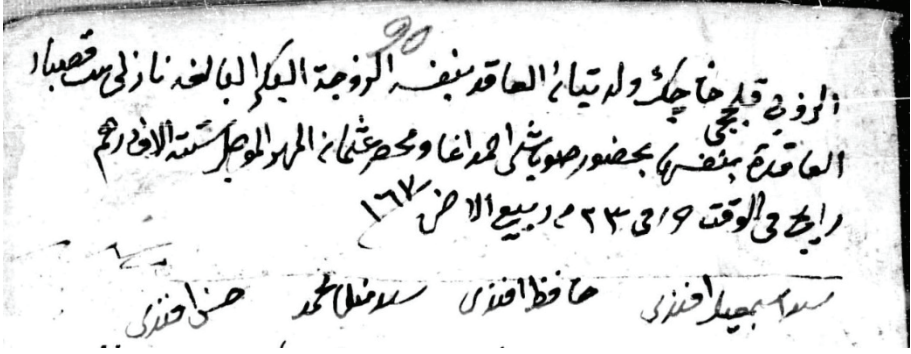 ٩٥
الزوج قليجي خاجيك ولد تيان العاقد بنفسه الزوجة البكر البالغة نازلى بنت قصبار
العاقدة بنفسها بحضور صوباشى احمد اغا ومحضر عثمان المهر الموجل ستة الاف درهم
رايج فى الوقت و فى ٢٣ م ربيع الاخر ١٦٧
اسمعيل افندى حافظ افندى منلا محمد حسن افندى